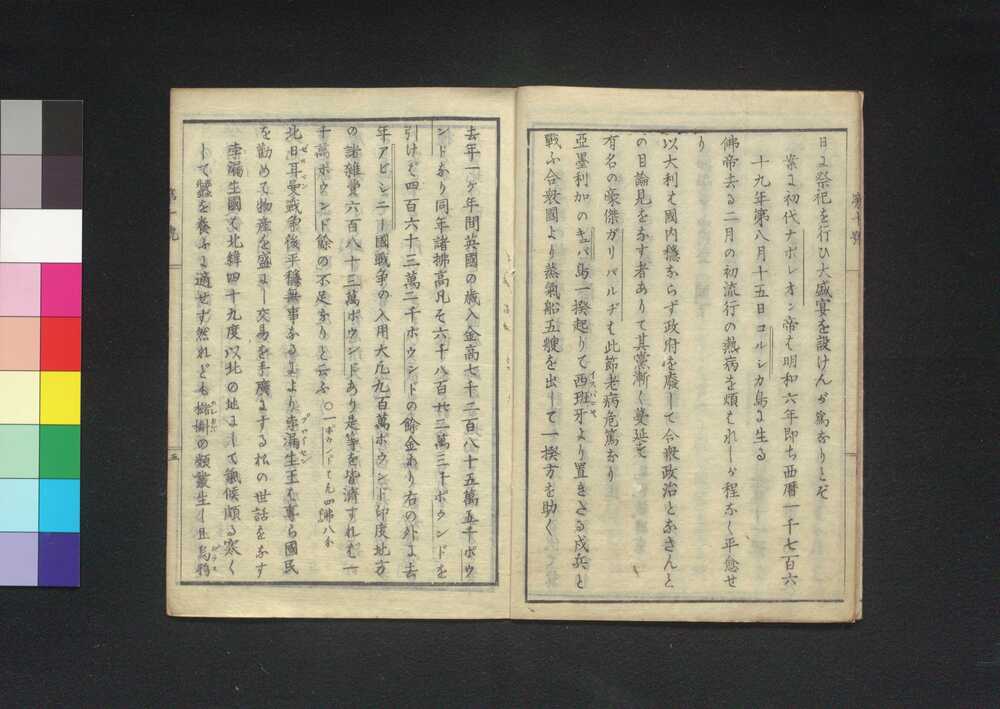 日ニ祭祀を行ひ大盛宴を設けんが爲なりとぞ
案ニ初代ナポレオン帝ハ明和六年即ち西暦一千七百六
十九年第八月十五日コルシカ島ニ生る
佛帝去る二月の初流行の熱病を煩ハれしが程なく平愈せ
り
以大利ハ國内穩ならず政府を廢して合衆政治となさんと
の目論見をなす者ありて其黨漸く蔓延す
有名の豪傑ガリバルヂも此節老病危篤なり
亞墨利加のキュバ島一揆起りて西班牙より置きたる戍兵と
イスパニヤ
戰ふ合衆國より蒸氣船五艘を出して一揆方を助く
去年一ヶ年間英國の歳入金高七千二百八十五萬五千ポウ
ンドなり同年諸拂高凡そ六千八百廿二萬三千ポウンドを
引けバ四百六十三萬二千ポウンドの餘金あり右の外ニ去
年アビシニー國戰争の入用大凡九百萬ポウンド印度地方
の諸雜費六百八十三萬ポウンドあり是等を皆濟すれバ一
千萬ポウンド餘の不足なりと云ふ ○一ポウンドハ凡四
北日耳曼戰争後平穩無事なるニより孛漏生王ハ專ら國民
ゼルマン
プロイセン
を勸めて物産を盛ニし交易を手廣にする抔の世話をなす
孛漏生國ハ北緯四十九度以北の地ニして氣候頗る寒く
して蠶を養ふニ適せず然れども
の類叢生し且